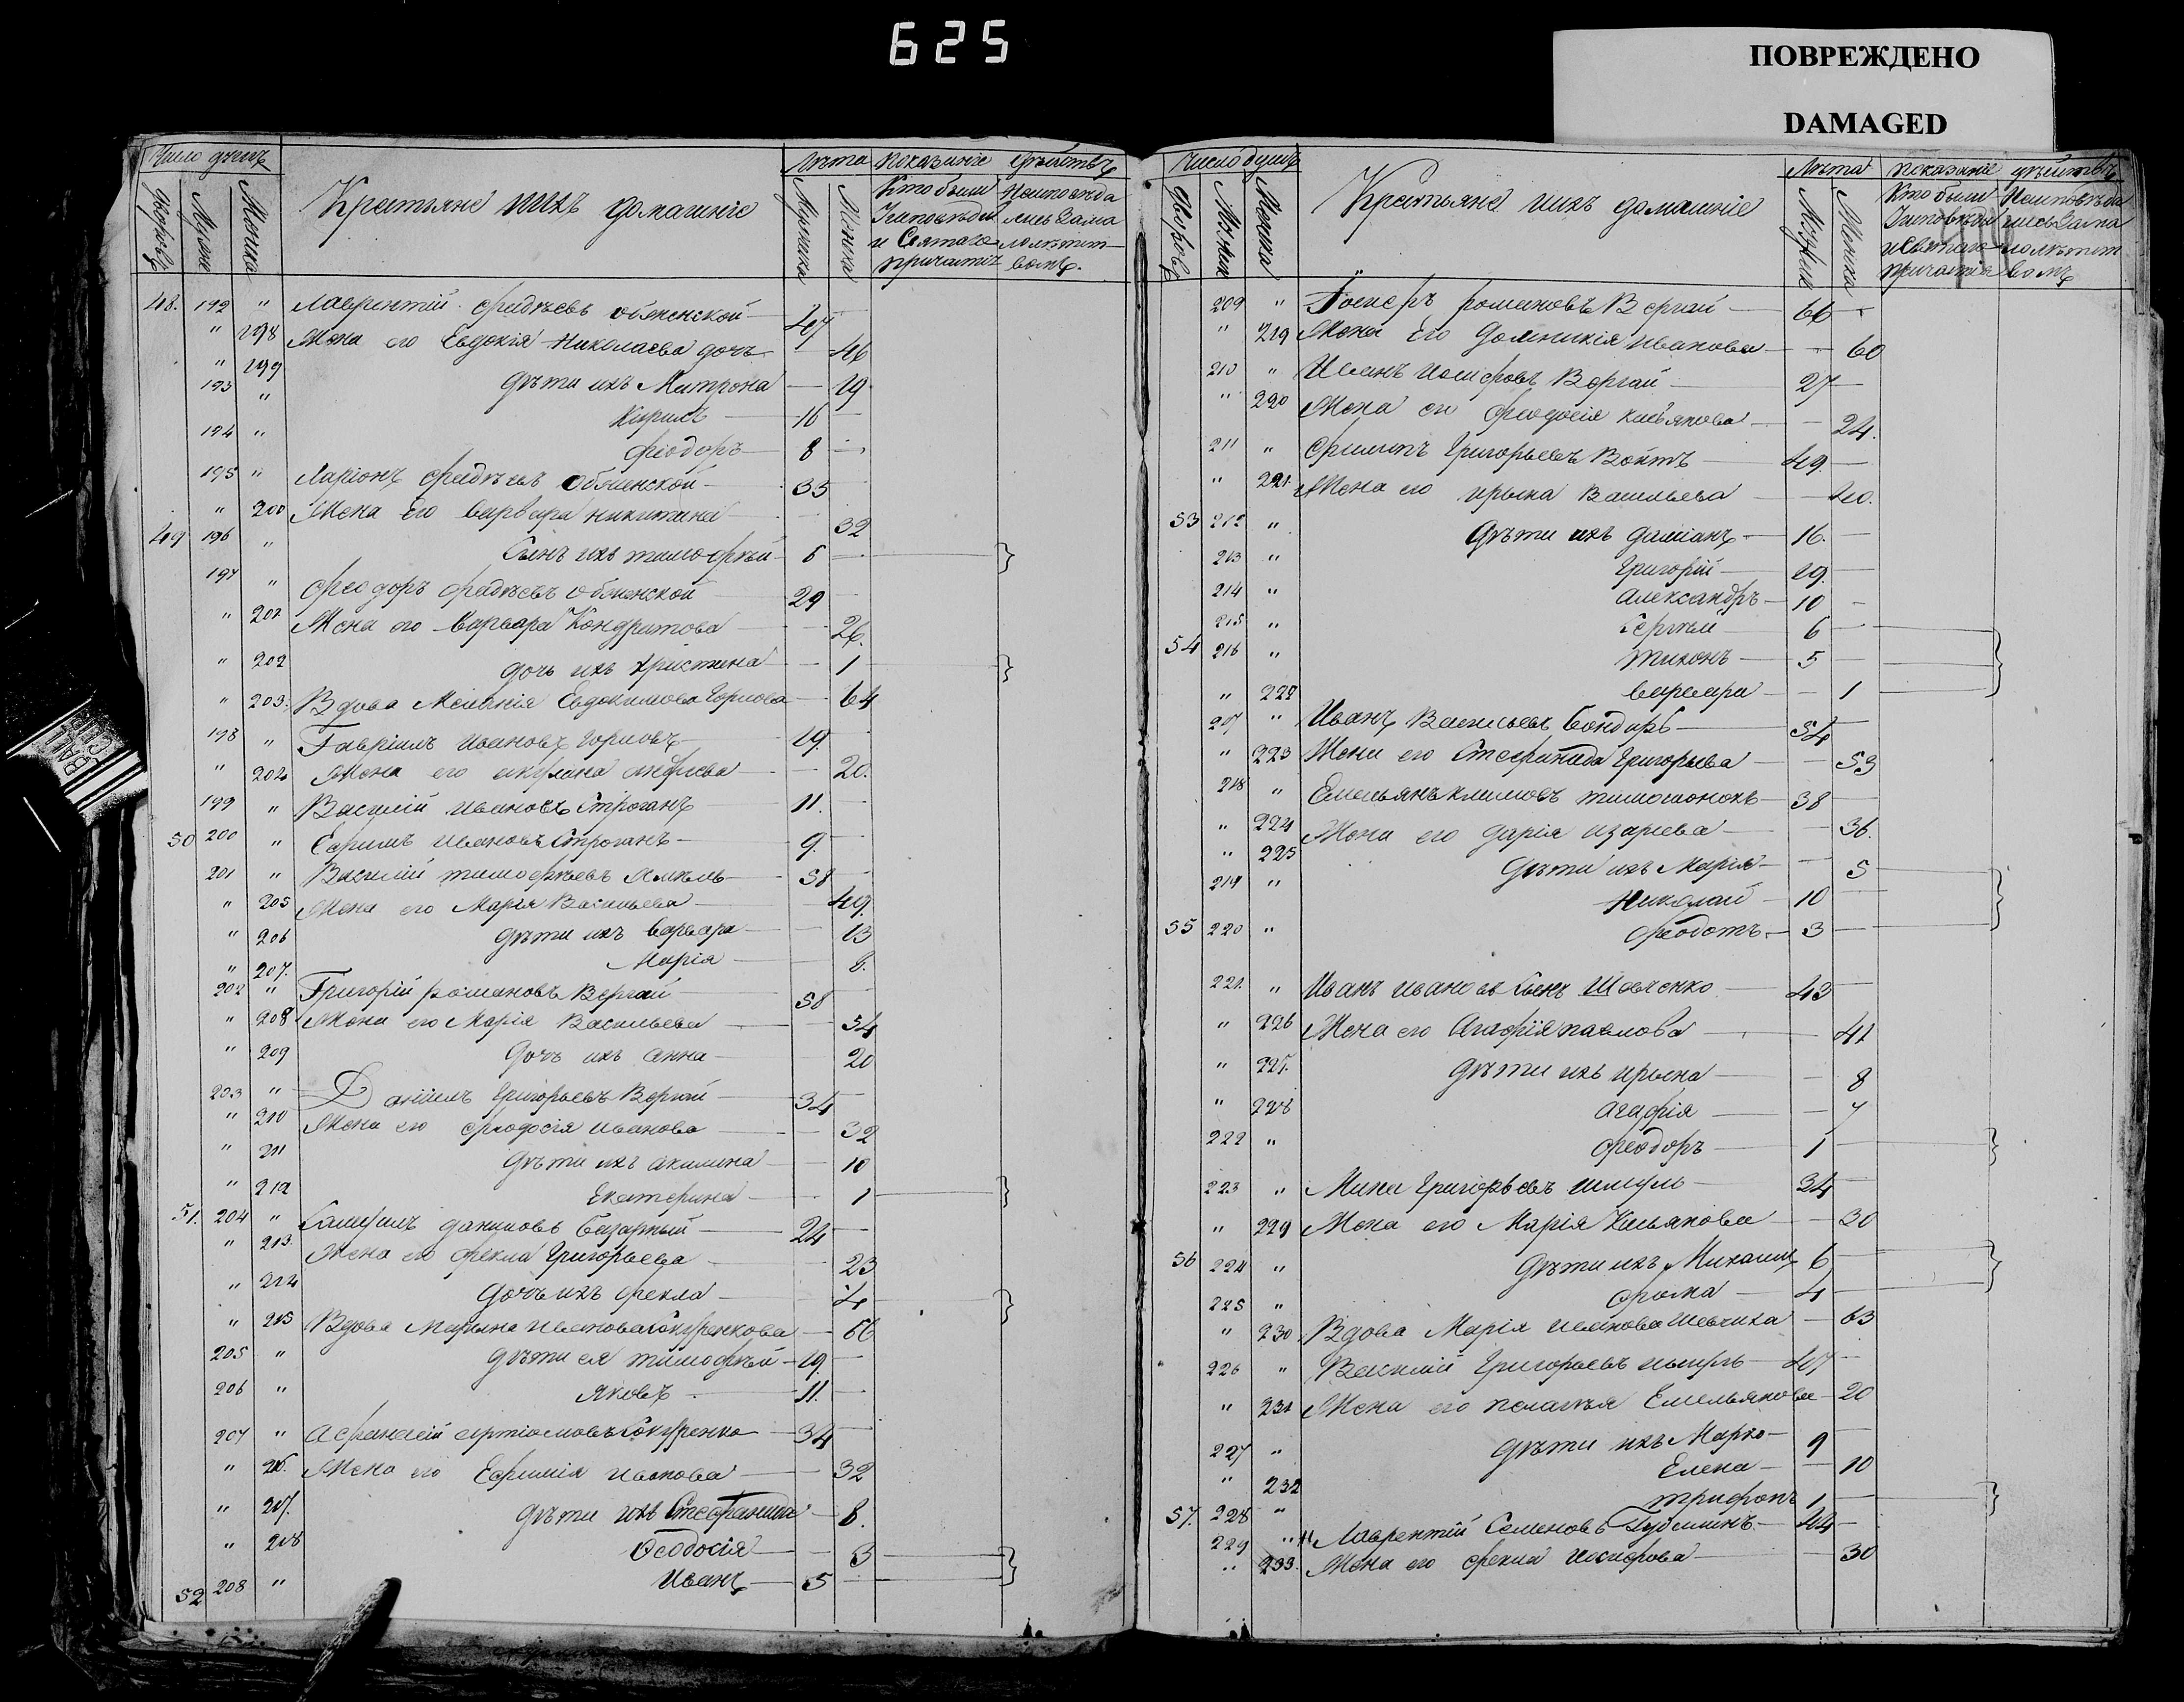 625
ПОВРЕЖДЕНО
DAMAGED
Число душъ
Дворовъ
Мужие
Женска
Крестьяне ихъ домашніе
Лѣта
Мужеска
Женска
показаніе дѣйствъ
Кто были Исповѣди и Святаго причастія
Неисповѣдались Замалолѣтствомъ.
48. 192 " Лаврентій Фадѣевъ 47
" 198 Жена его Евдокія Николаева дочь 46
" 199 Дѣти ихъ Матрона 19
193 " Кирилъ 16
194 " Фіодоръ 8
195 " Ларіонъ Фадѣевъ 35
" 200 Жена Его Варвара никитина 32
49 196 " Сынъ ихъ тимофѣй 6
197 " Феодоръ Фадѣевъ 29
" 201 Жена его Варвара Кондратова 26.
" 202 дочь ихъ Христина 1
" 203. Вдова Евдокимова 64
198 " Гавріилъ Ивановъ 19
" 204 Жена его акулина 20.
199 " Василій Ивановъ Строганъ 11.
50 200 " Ефимъ Ивановъ Строганъ 9.
201 " Василій тимофѣевъ 58
" 205 Жена его Марія Васильева 49.
" 206 Дѣти ихъ Варвара 13
" 207. Марія 8.
202 " Григорій романовъ Вергай 58
" 208 Жена его Марія Васильева 54
" 209 Дочь ихъ Анна 20
203 " Даніилъ Григорьевъ Вергай 34
" 210 Жена его феодосія Иванова 32
" 211 Дѣти ихъ акилина 10
" 212 Екатерина 1
51. 204 " Самуилъ даниловъ 24
" 213. Жена его фекла Григорьева 23
" 214 Дочь ихъ фекла 4
" 215 Вдова Марьяна Иванова 66
205 " Дѣти ея тимофѣй 19.
206 " Яковъ 11.
207 " Афанасій артіомовъ 34
" 216. Жена его Ефимія Иванова 32
" 217. Дѣти ихъ Стефанида 8.
" 218 Ѳеодосія 3
52 208 " Иванъ 5
Число душъ
Дворовъ
Мужеск
Женска
Крестьяне ихъ домашніе
Лѣта
Мужеск
Женска
показаніе дѣйствъ
Кто были Исповѣди и Святаго причастія
Неисповѣдались Замалолѣтствомъ
209 " романовъ Вергай 66
" 219 Жена Его Домникія Иванова 60
210 " Иванъ Иосифовъ Вергай 27
" 220 Жена его феодосія 24.
211 " Филипъ Григорьевъ Войтъ 49
" 221 Жена его ирына Васильева 40.
53 212 " Дѣти ихъ даміанъ 16.
213 " Григорій 19.
214 " Александръ 10
215 " Сергѣй 6
54 216 " тихонъ 5
" 222 Варвара 1
207 " Иванъ Васильевъ Бондарь 54
" 223 Жена его Стефанида Григорьева 53
218 " Емельянъ климовъ 38
" 224 Жена его дарія 36.
" 225 Дѣти ихъ Марія 5
219 " Николай 10
55 220 " Феодотъ 3
221. " Иванъ Ивановъ Сынъ Шевченко 43
" 226 Жена его Агафія павлова 41
" 227. Дѣти ихъ ирына 8
" 228 Агафія 7
222 " Феодоръ 1
223 " Мина Григорьевъ 34
" 229 Жена его Марія 30
56 224 " Дѣти ихъ Михаилъ 6
225 " Фома 4
" 230 Вдова Марія Иванова 63
226 " Василій Григорьевъ 47
" 231 Жена его пелагѣя Емельянова 20
227 " Дѣти ихъ Марко 9
" 232 Елена 10
57. 228 " трифонъ 1
229 " Лаврентій Семеновъ 44
" 233. Жена его фекла Иосифова 30